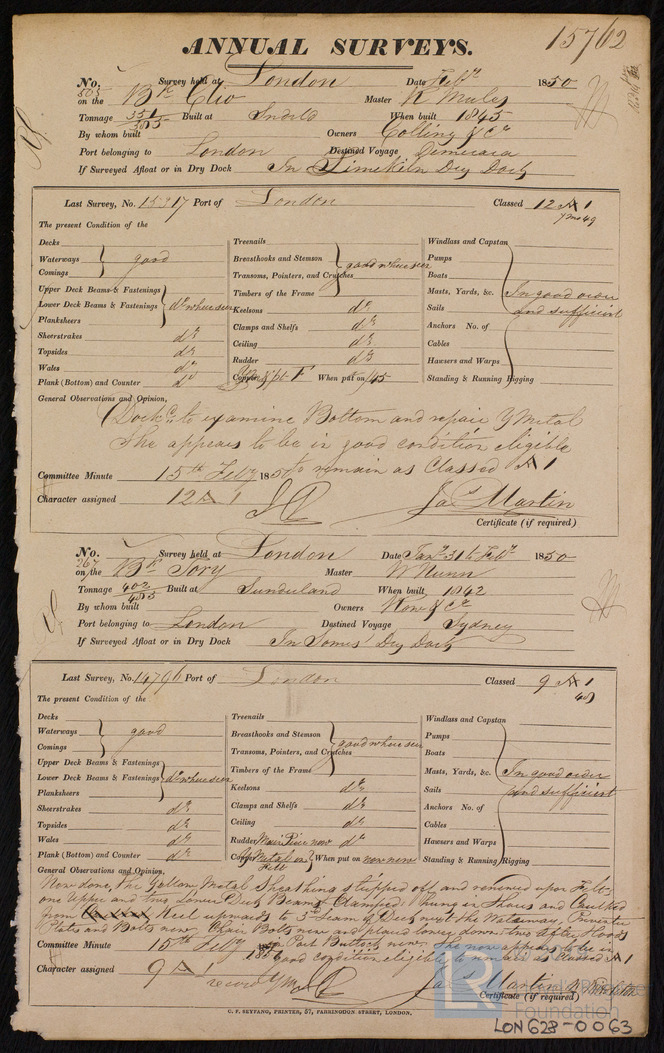 15762
ANNUAL SURVEYS.
No. 503 Survey held at London Date Feby 1850
on the Bk Clio Master R Mules
Tonnage 351 Built at When built 1845
385
By whom built Owners Colling & Co
Port belonging to London Destined Voyage Demerara
If Surveyed Afloat or in Dry Dock In Limekiln Dry Dock
Last Survey, No. 15917 Port of London Classed 12 A 1
The present Condition of the 7mo 49
Decks Treenails Windlass and Capstan
Waterways good Breasthooks and Stemson good where seen Pumps
Comings Transoms, Pointers, and Crutches Boats
Upper Deck Beams & Fastenings Timbers of the Frame Masts, Yards, &c. In good order
Lower Deck Beams & Fastenings do where seen Keelsons do Sails and sufficient
Planksheers Clamps and Shelfs do Anchors No. of
Sheerstrakes do Ceiling do Cables
Topsides do Rudder do Hawsers and Warps
Wales do Copper When put on /45 Standing & Running Rigging
Plank (Bottom) and Counter do
General Observations and Opinion,
Dockd to examine Bottom and repair Y Metal
She appears to be in good condition eligible
to remain as Classed A 1
Committee Minute 15th Feby 1850
Character assigned 12 A 1 Jas Martin
Certificate (if required)
No. 267 Survey held at London Date Jany 31 to Feby 1850
on the Bk Tory Master W Nunn
Tonnage 402 Built at Sunderland When built 1842
485
By whom built Owners Row & Co
Port belonging to London Destined Voyage Sydney
If Surveyed Afloat or in Dry Dock In Somes' Dry Dock
Last Survey, No. 14796 Port of London Classed 9 A 1
The present Condition of the 49
Decks Treenails Windlass and Capstan
Waterways good Breasthooks and Stemson good where seen Pumps
Comings Transoms, Pointers, and Crutches Boats
Upper Deck Beams & Fastenings Timbers of the Frame Masts, Yards, &c. In good order
Lower Deck Beams & Fastenings do where seen Keelsons do Sails and sufficient
Planksheers Clamps and Shelfs do Anchors No. of
Sheerstrakes do Ceiling do Cables
Topsides do Rudder Main Piece new do Hawsers and Warps
Wales do Copper Y Metal on Felt When put on now new Standing & Running Rigging
Plank (Bottom) and Counter do
General Observations and Opinion,
Now done, The Yellow Metal Sheathing stripped off and renewed upon Felt
one Upper and two Lower Deck Beams Clamped: hung in Shores and Caulked
from Keel upwards to 3rd seam of Deck next the Waterway,
Plates and Bolts new, Chain Bolts new and placed lower down: two after Hoods
Port Buttock new. She now appears to be in
good condition eligible to remain as Classed A 1
Committee Minute 15th Feby 1850
Character assigned 9 A 1 Jas Martin
Certificate (if required)
C. F. SEYFANG, PRINTER, 57, FARRINGDON STREET, LONDON.
Foundation
LON628-0063